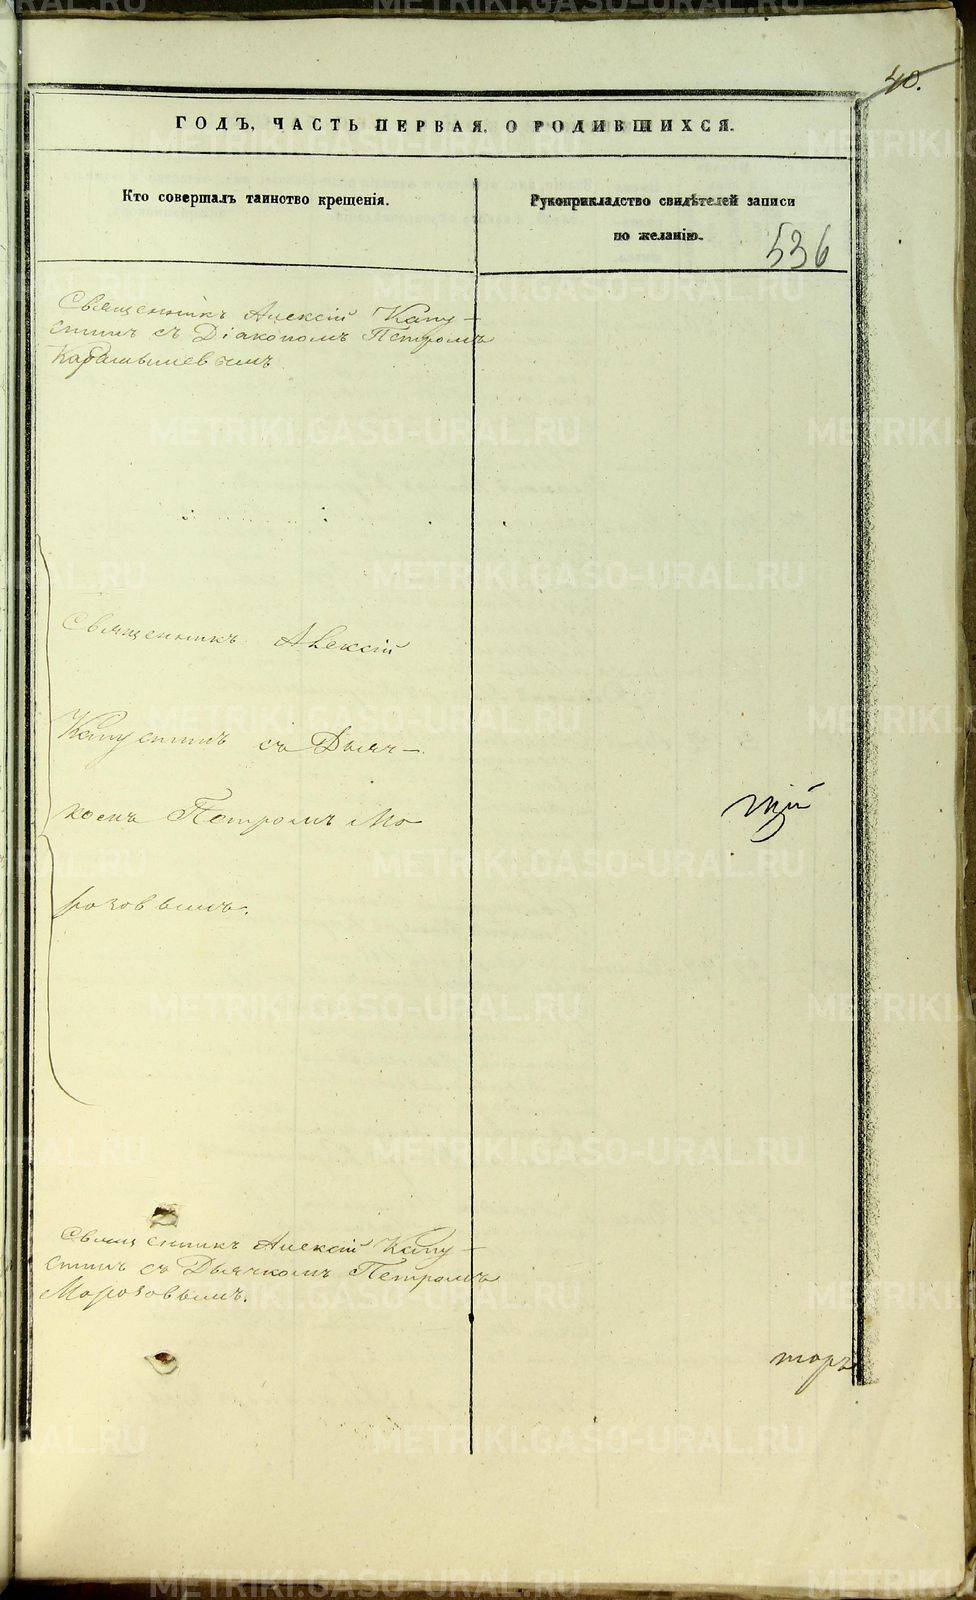 40.
ГОДЪ, ЧАСТЬ ПЕРВАЯ, О РОДИВШИХСЯ.
Кто совершалъ таинство крещенія.
Рукоприкладство свидѣтелей записи
по желанію.
536
Священникъ Алексій Капу-
стинъ съ Діакономъ Петромъ
Священникъ Алексій
Капустинъ съ Дьяч-
комъ Петромъ Мо
розовымъ.
Священникъ Алексій Капу-
стинъ съ Дьячкомъ Петромъ
Морозовымъ.
METRIKI.GASO-URAL.RU